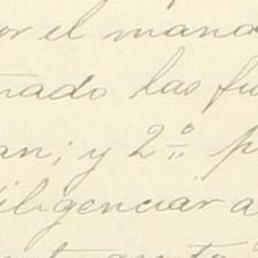 or el manda
nado las fu
an; y 2º p
diligenciar a